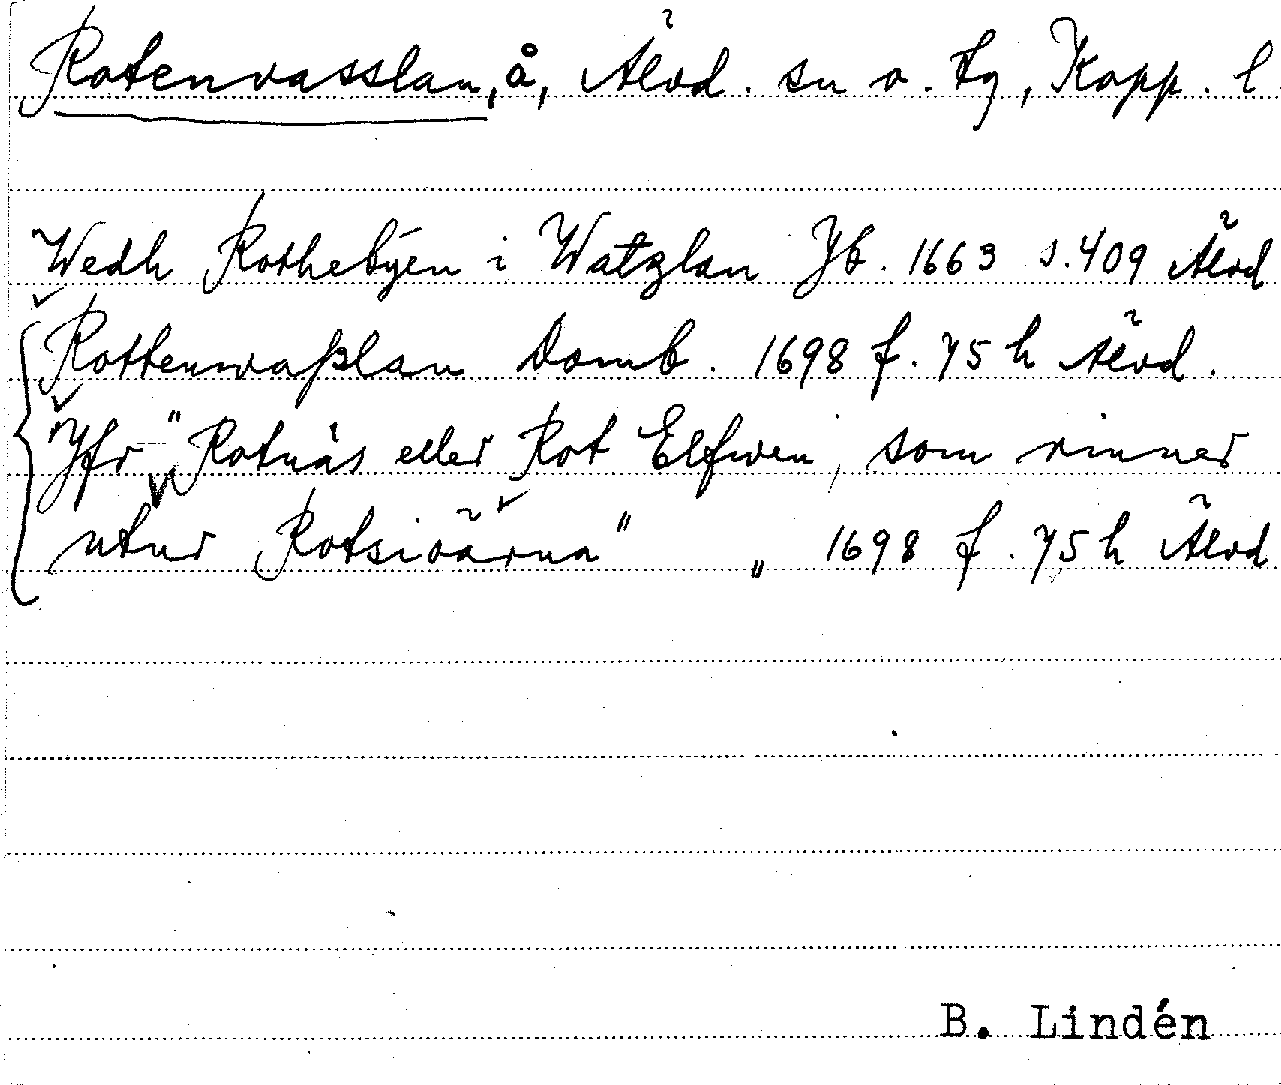 Rotenvasslan, å, Älvd. sn o. tg, Kopp. l
Wedh Rothebyen i Watzlan Jb. 1663 s. 409 Älvd
Rottenwaßlan Domb. 1698 f. 75 h Älvd.
Jfr "Rotnås eller Rot Elfwen, som rinner
utur Rotsiöärna" " 1698 f. 75 h Älvd
B. Lindén